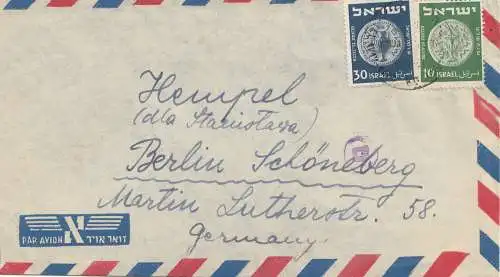 ישראל ישראל
30 ISRAEL اسرائيل 10 ISRAEL اسرائيل
Hempel
(dla Stanisława)
Berlin Schöneberg
Martin Lutherstr. 58.
Germany
PAR AVION דואר אויר